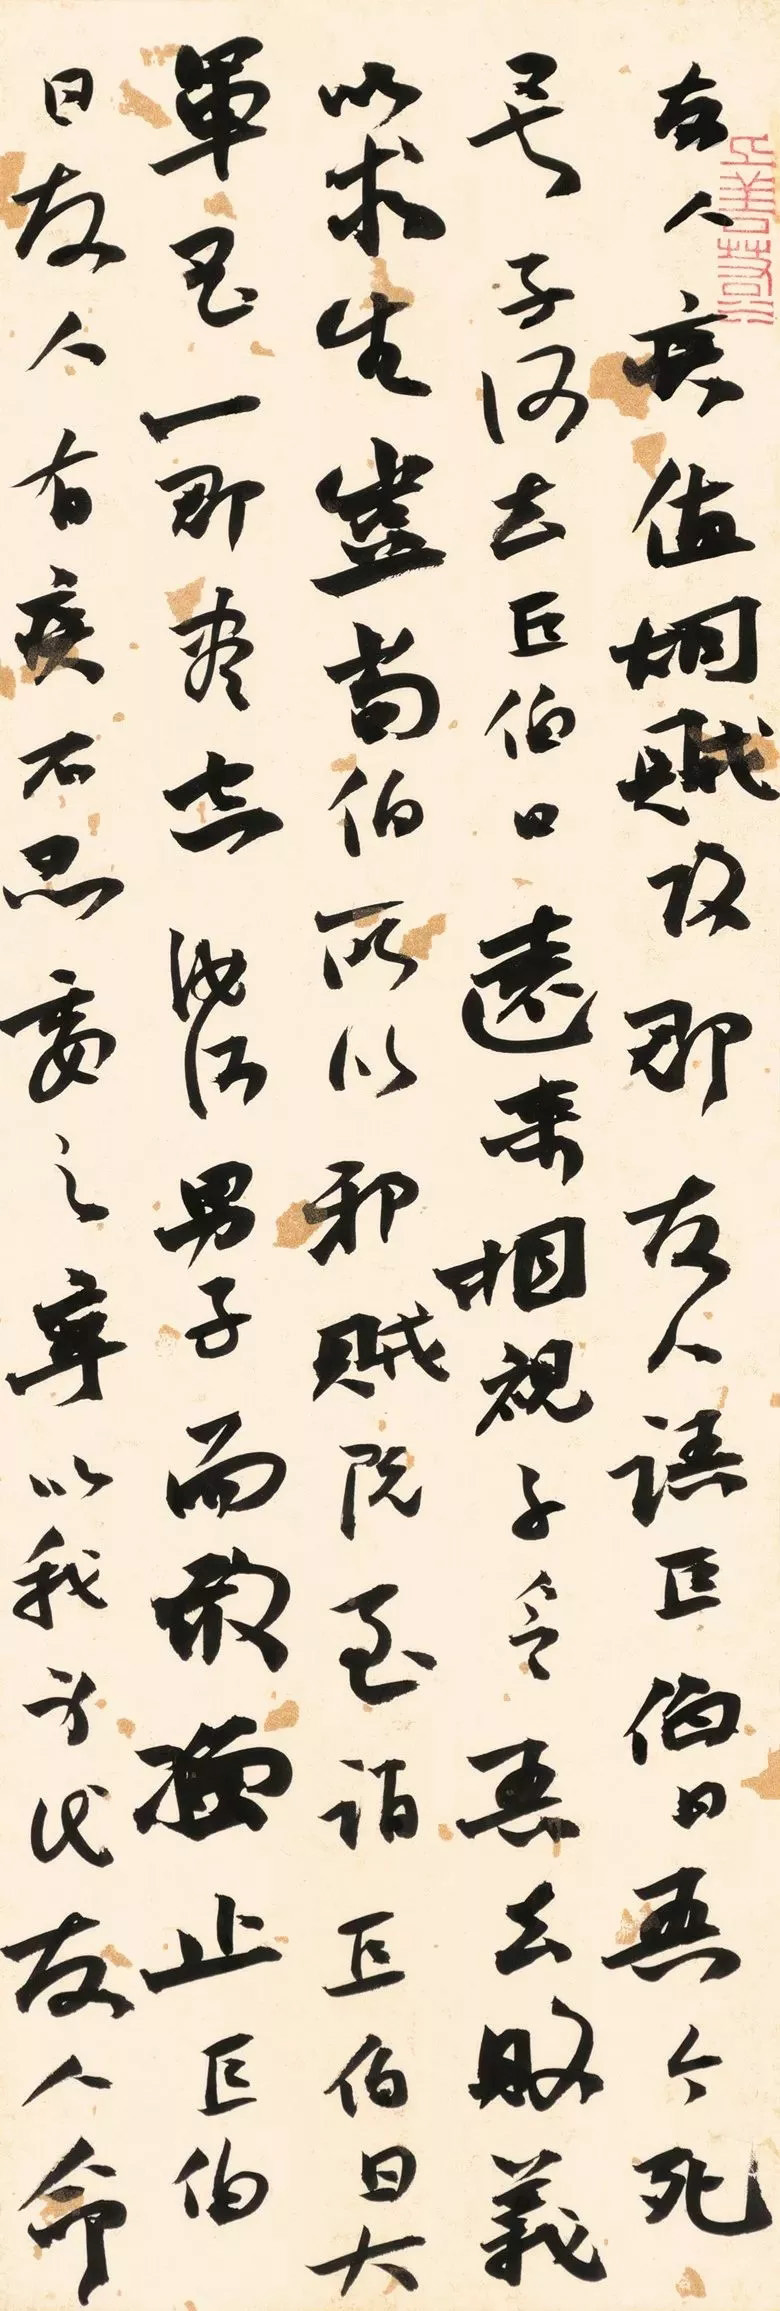 友人疾值胡賊攻郡友人語巨伯曰吾今死
矣子可去巨伯曰遠來相視子令吾去敗義
以求生豈荀伯所行邪賊既至謂巨伯曰大
軍至一郡盡空汝何男子而敢獨止巨伯
曰友人有疾不忍委之寧以我身代友人命